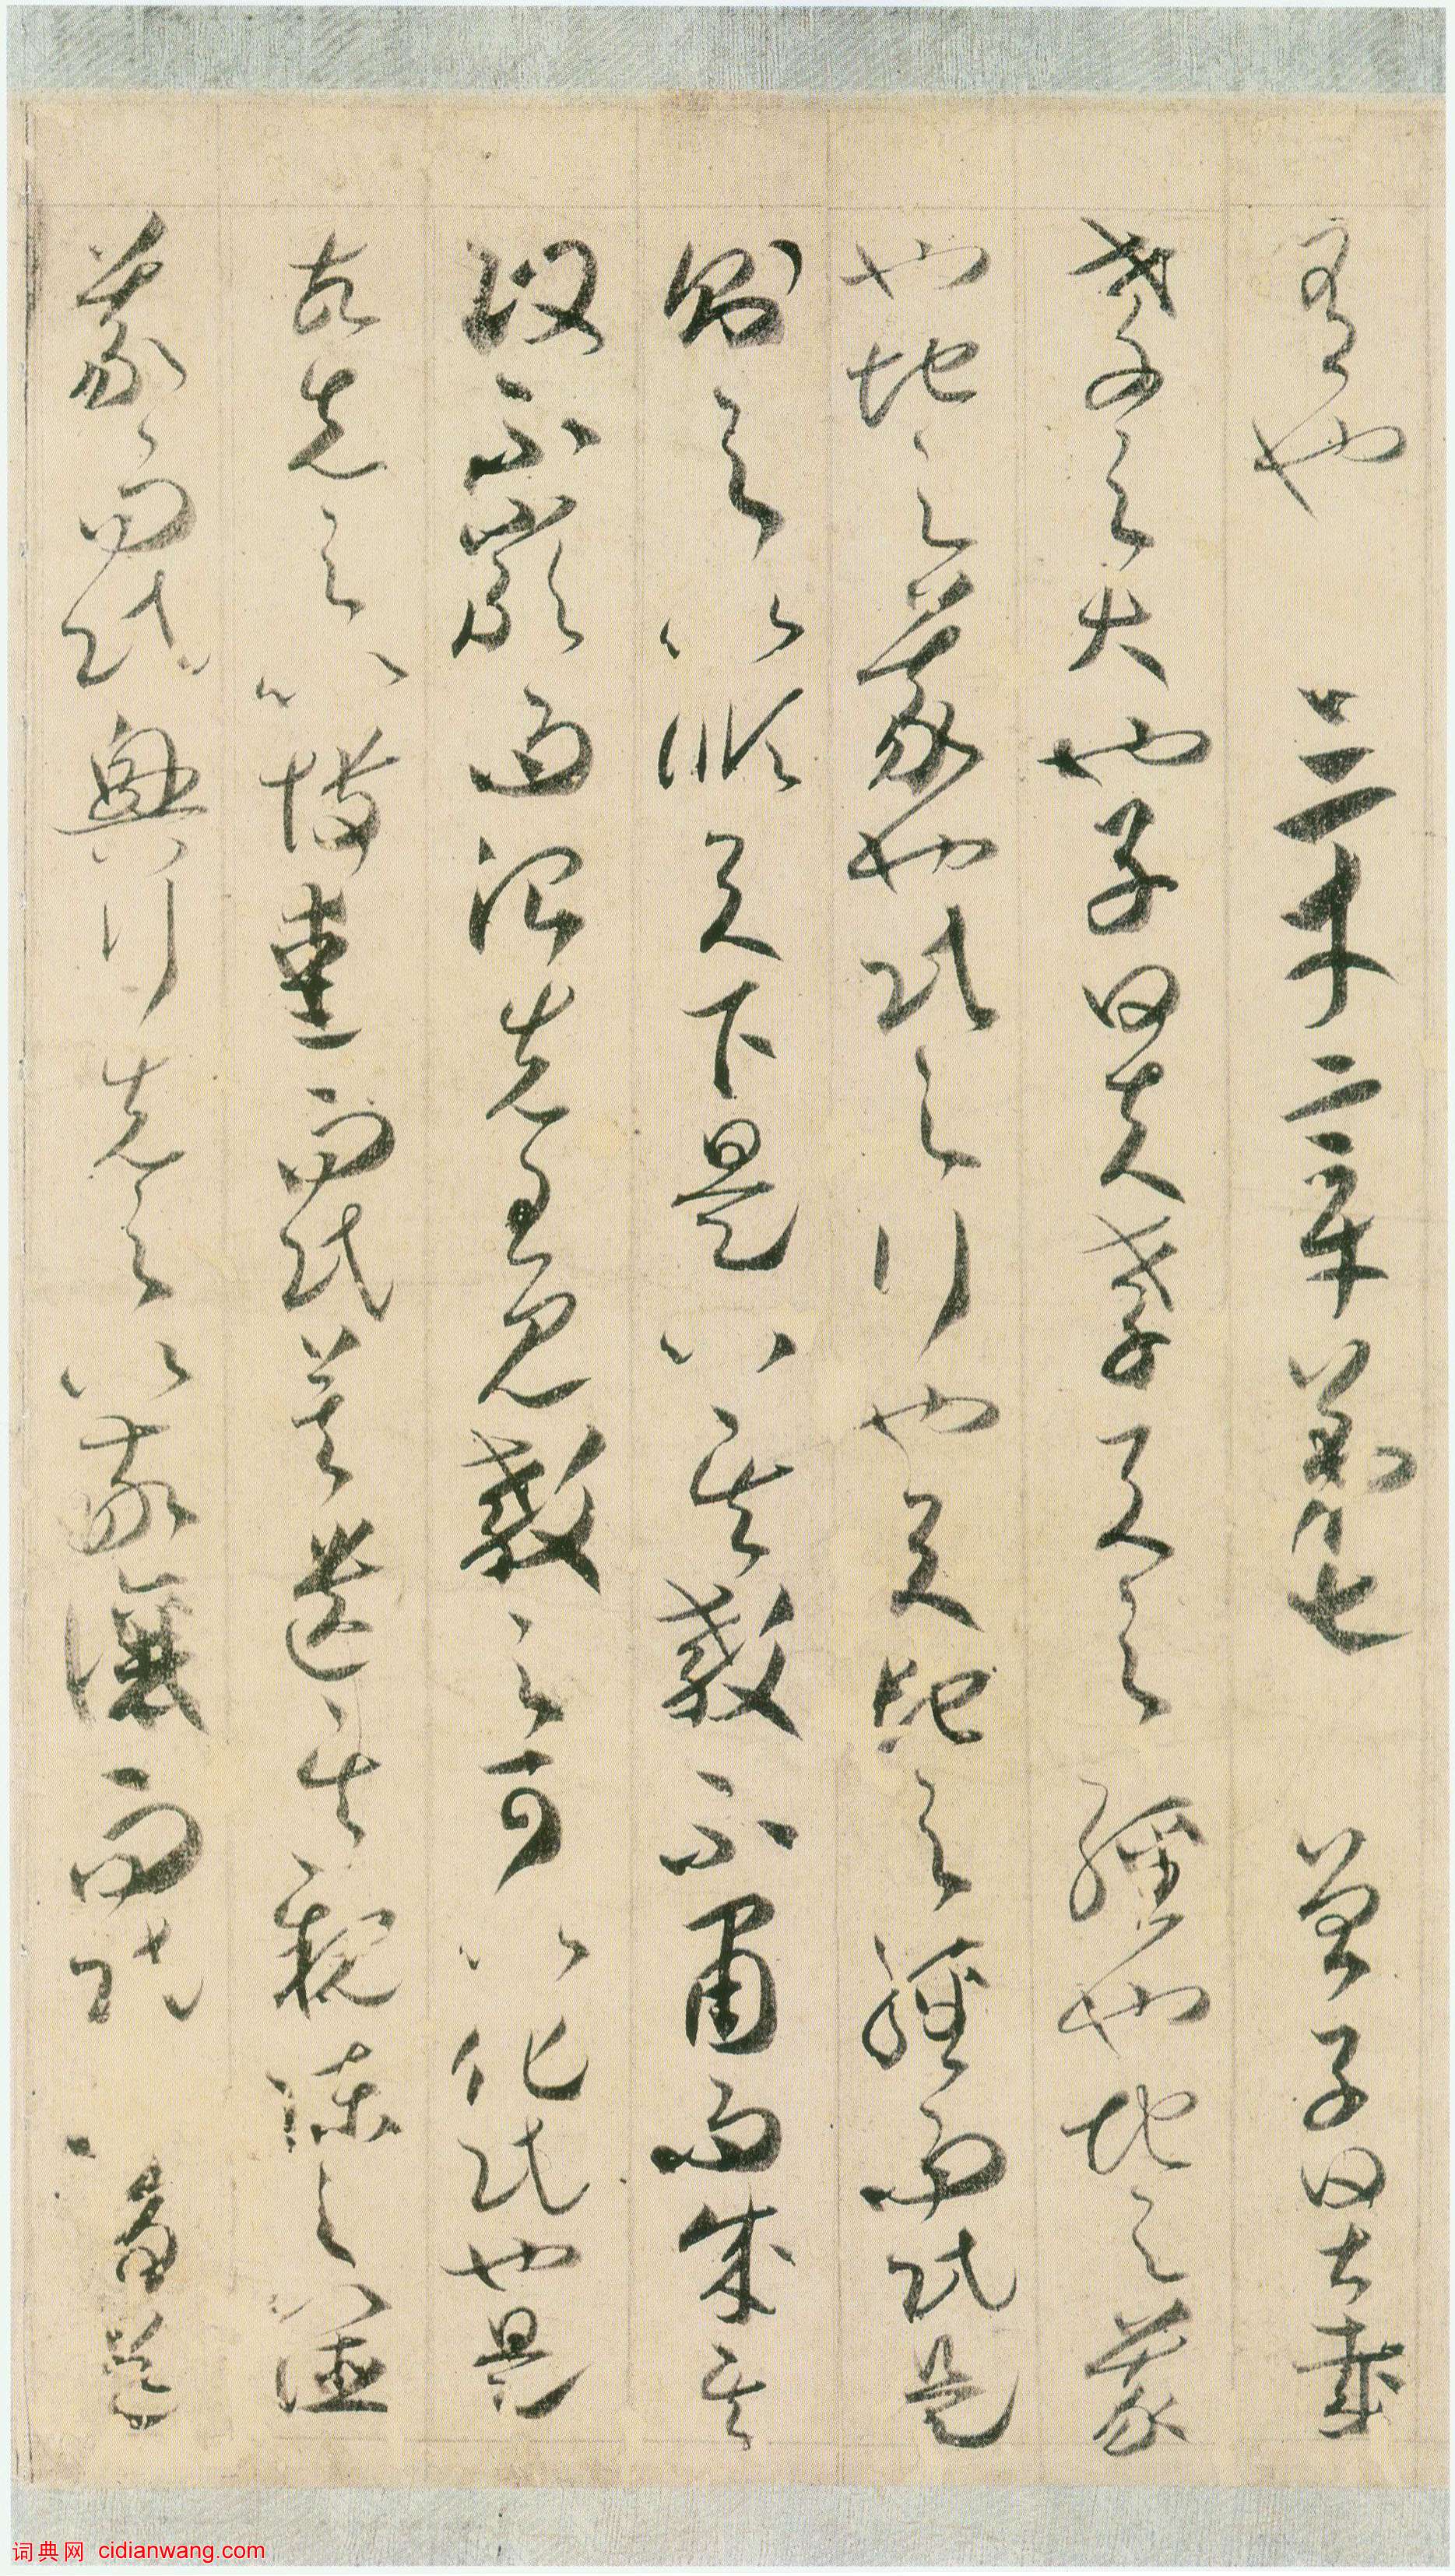 有也 三才章第七 曾子曰甚哉
孝之大也子曰夫孝天之經也地之義
也地之義也民之行也天地之經而民是
則之以順天下是以其教不肅而成其
政不嚴而治先王見教之可以化民也是
故先之以博愛而民莫遺其親陳之以德
義而民興行先之以敬讓而民
词典网 cidianwang.com